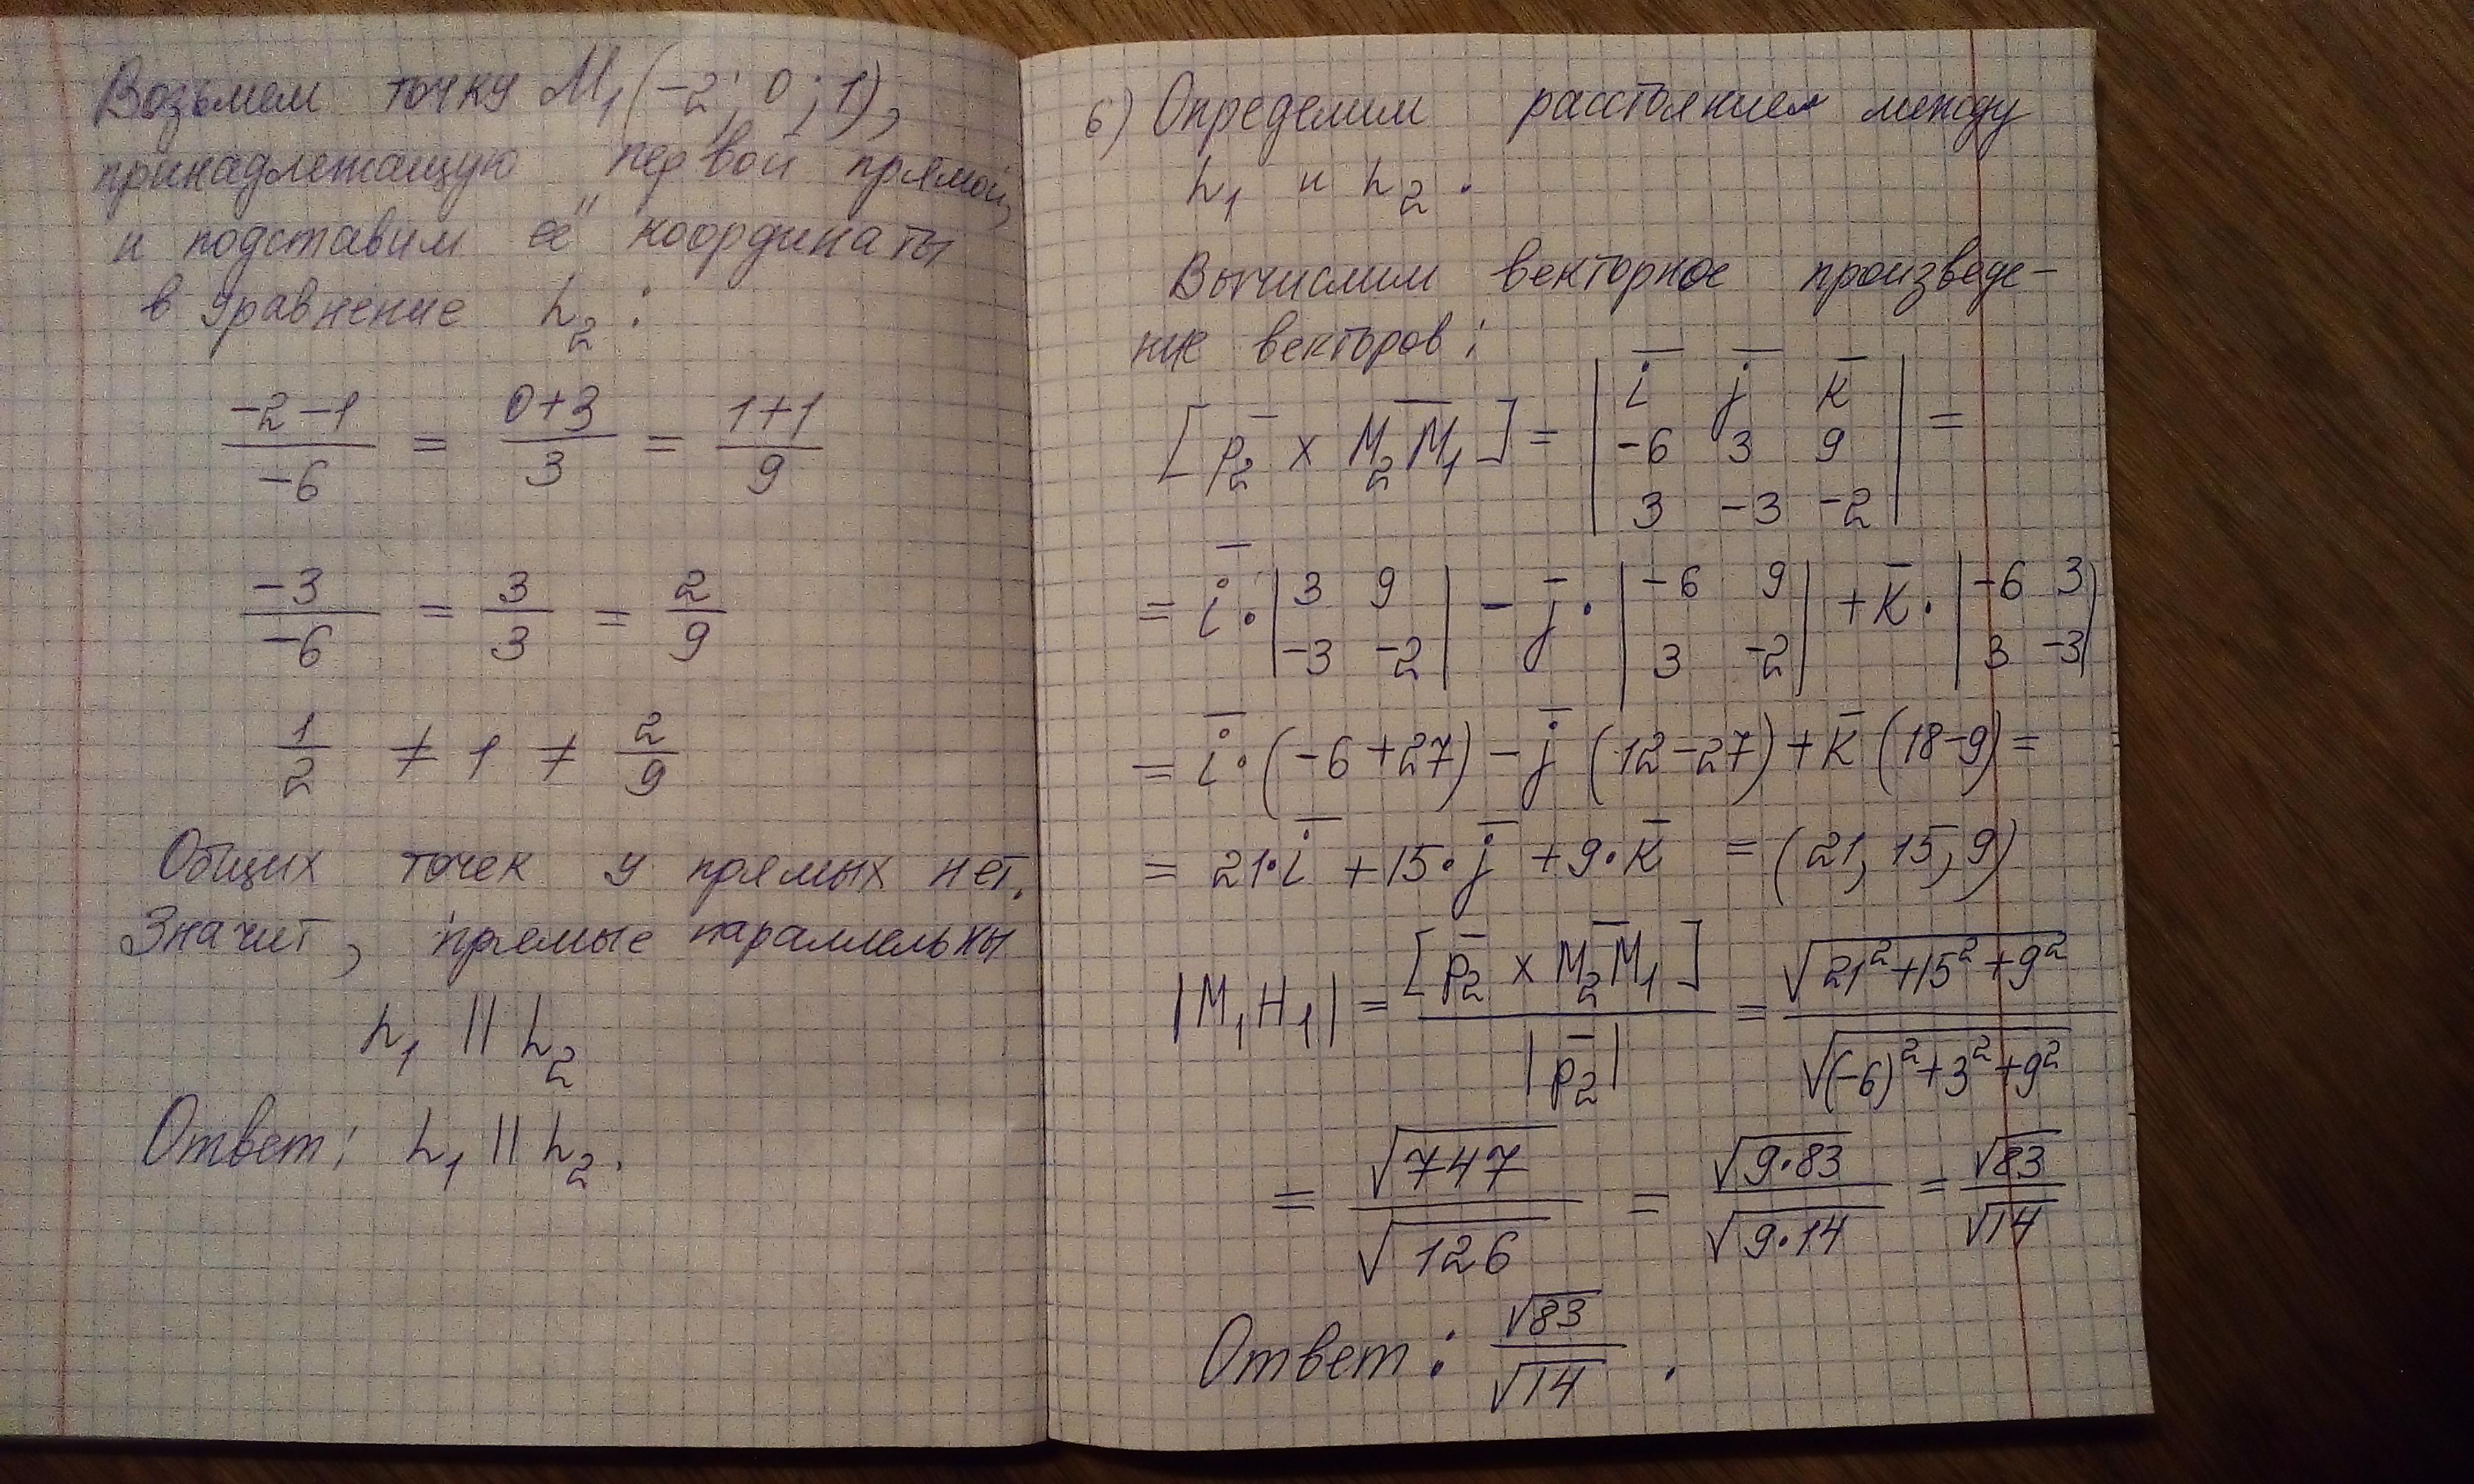 Возьмем точку M₁(-2; 0; 1),
принадлежащую первой прямой,
и подставим её координаты
в уравнение L₂:
(-2-1)/(-6) = (0+3)/3 = (1+1)/9
(-3)/(-6) = 3/3 = 2/9
1/2 ≠ 1 ≠ 2/9
Общих точек у прямых нет.
Значит, прямые параллельны
L₁ || L₂
Ответ: L₁ || L₂.
б) Определим расстояние между
L₁ и L₂.
Вычислим векторное произведе-
ние векторов:
[p̅₂ × M̅₂M̅₁] = |i̅ j̅ k̅; -6 3 9; 3 -3 -2| =
= i̅·|3 9; -3 -2| - j̅·|-6 9; 3 -2| + k̅·|-6 3; 3 -3|
= i̅·(-6+27) - j̅(12-27) + k̅(18-9) =
= 21·i̅ + 15·j̅ + 9·k̅ = (21, 15, 9)
|M₁H₁| = [p̅₂ × M̅₂M̅₁]/|p̅₂| = √(21²+15²+9²)/√((-6)²+3²+9²)
= √747/√126 = √(9·83)/√(9·14) = √83/√14
Ответ: √83/√14.